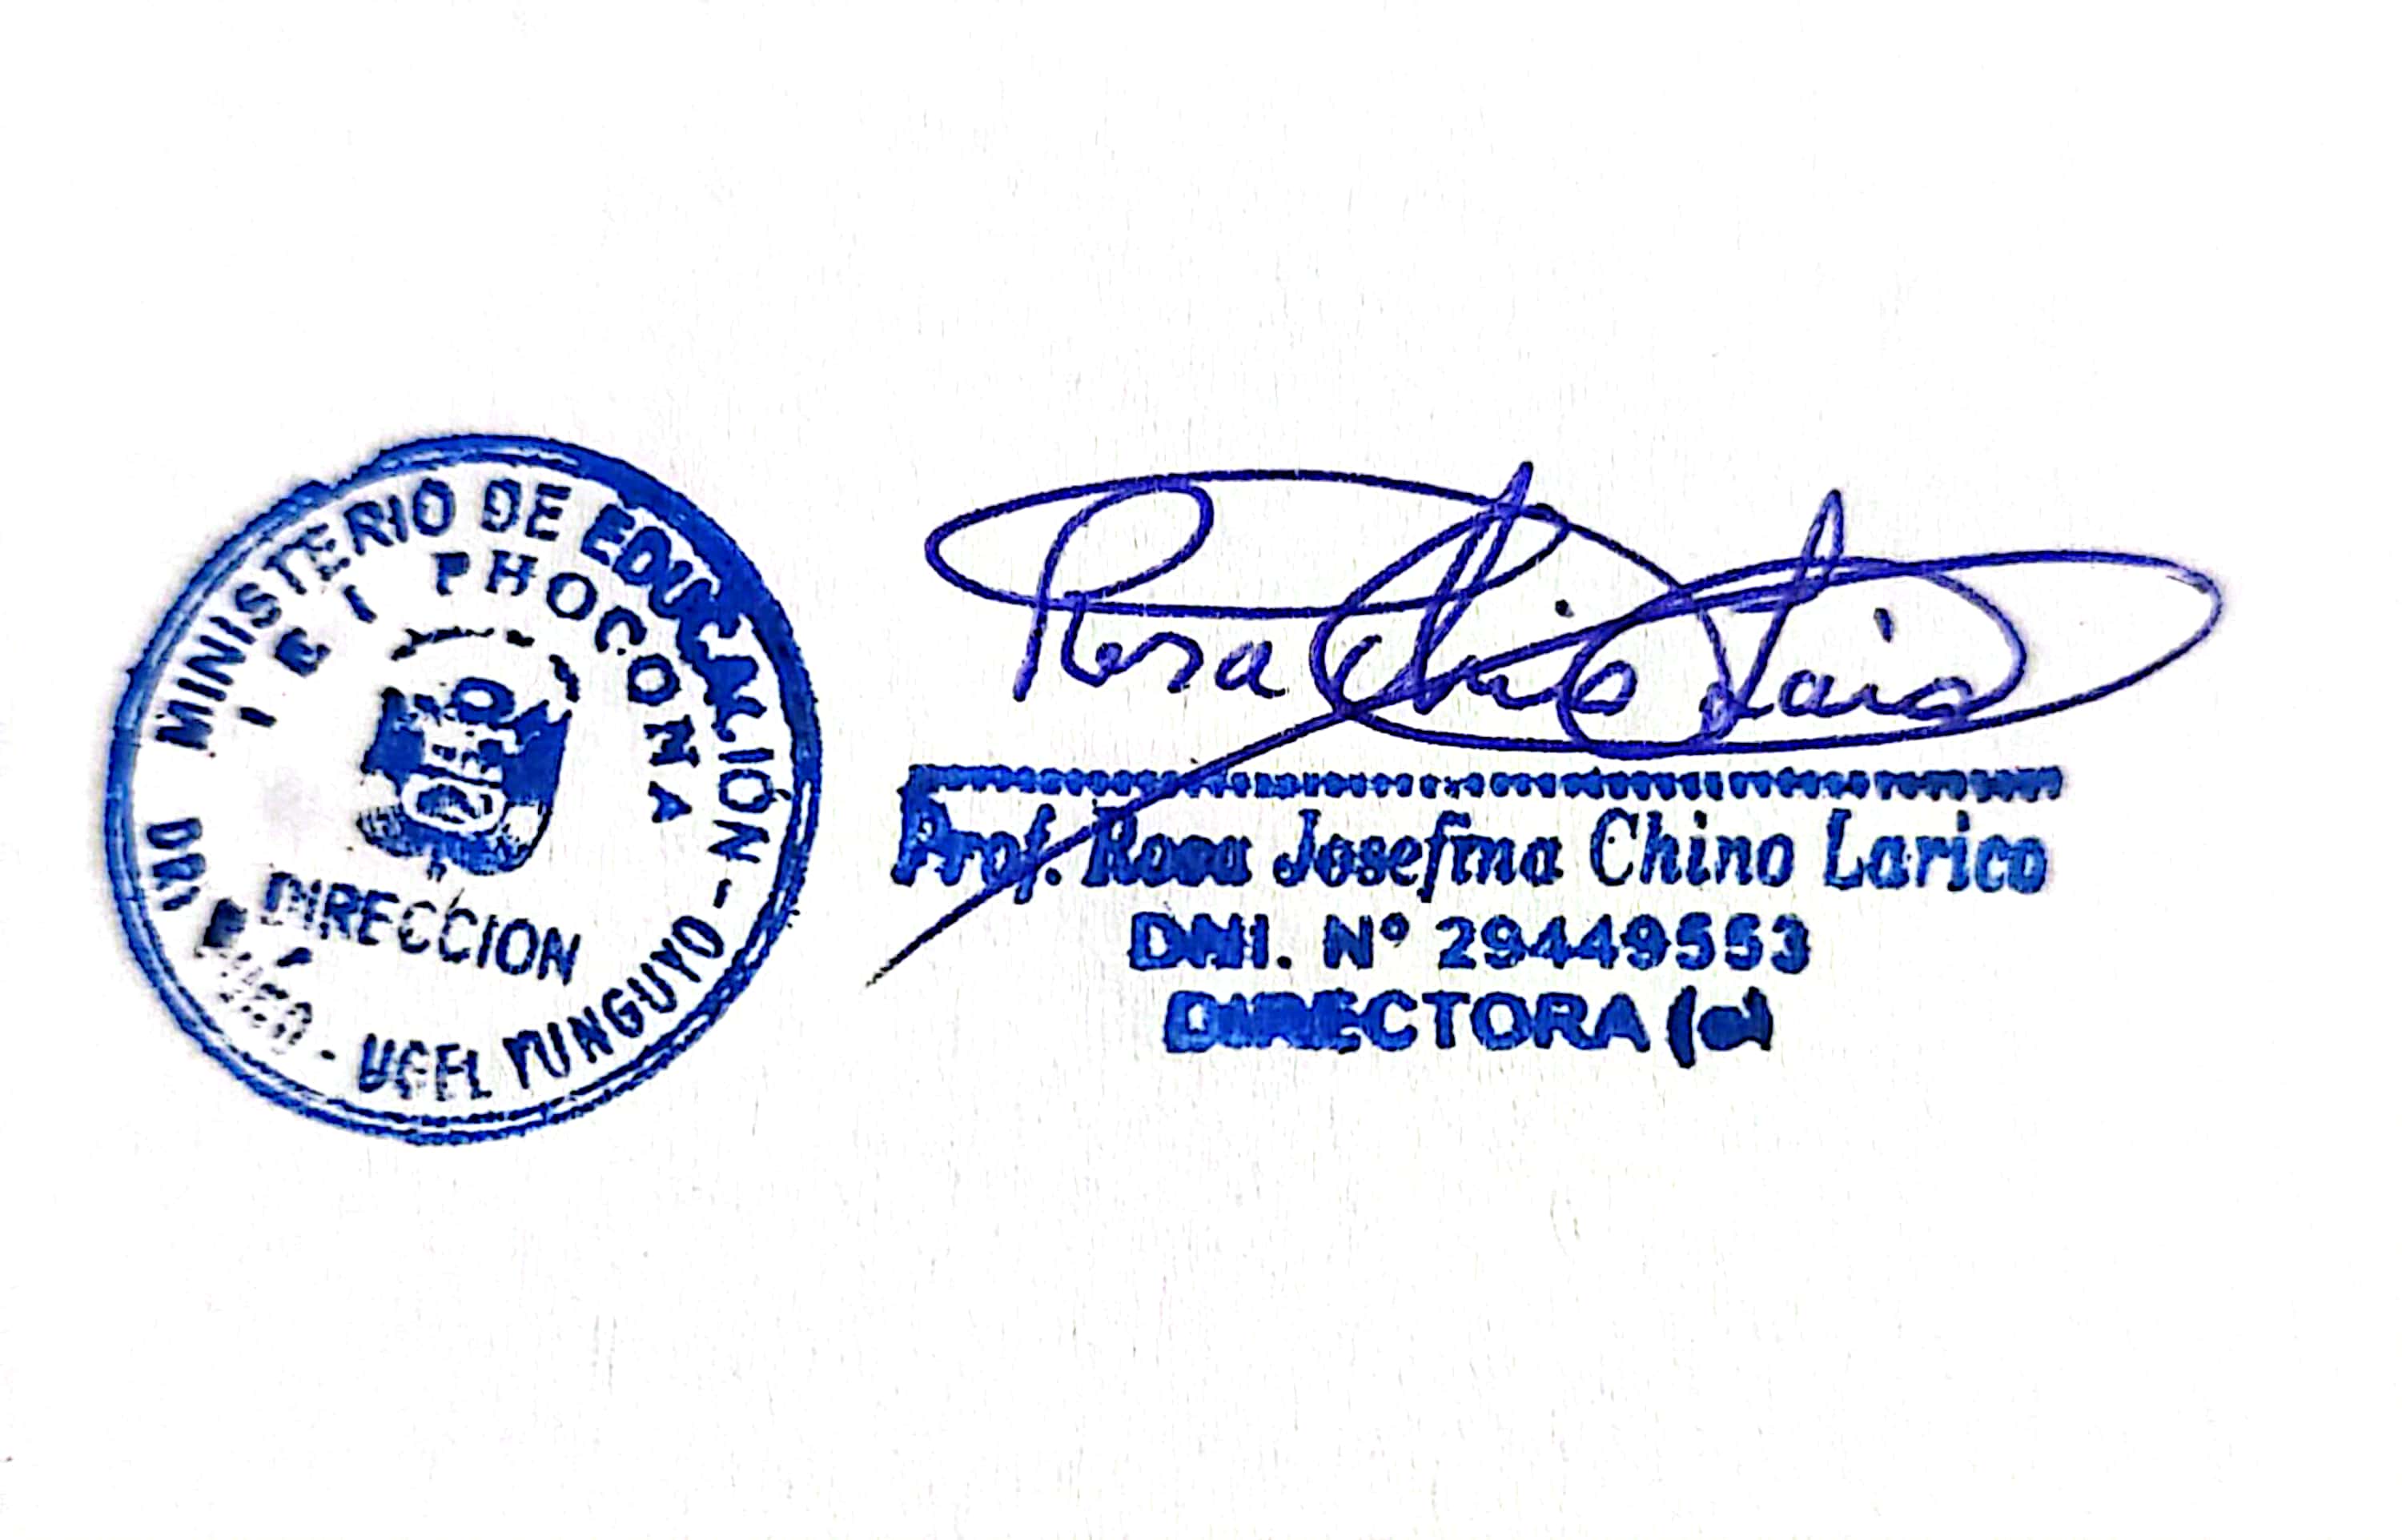 MINISTERIO DE EDUCACIÓN - UGEL YUNGUYO -
I E I PHOCONA
DIRECCION
Rosa Chino Laric
Prof. Rosa Josefina Chino Larico
DNI. Nº 29449553
DIRECTORA (e)